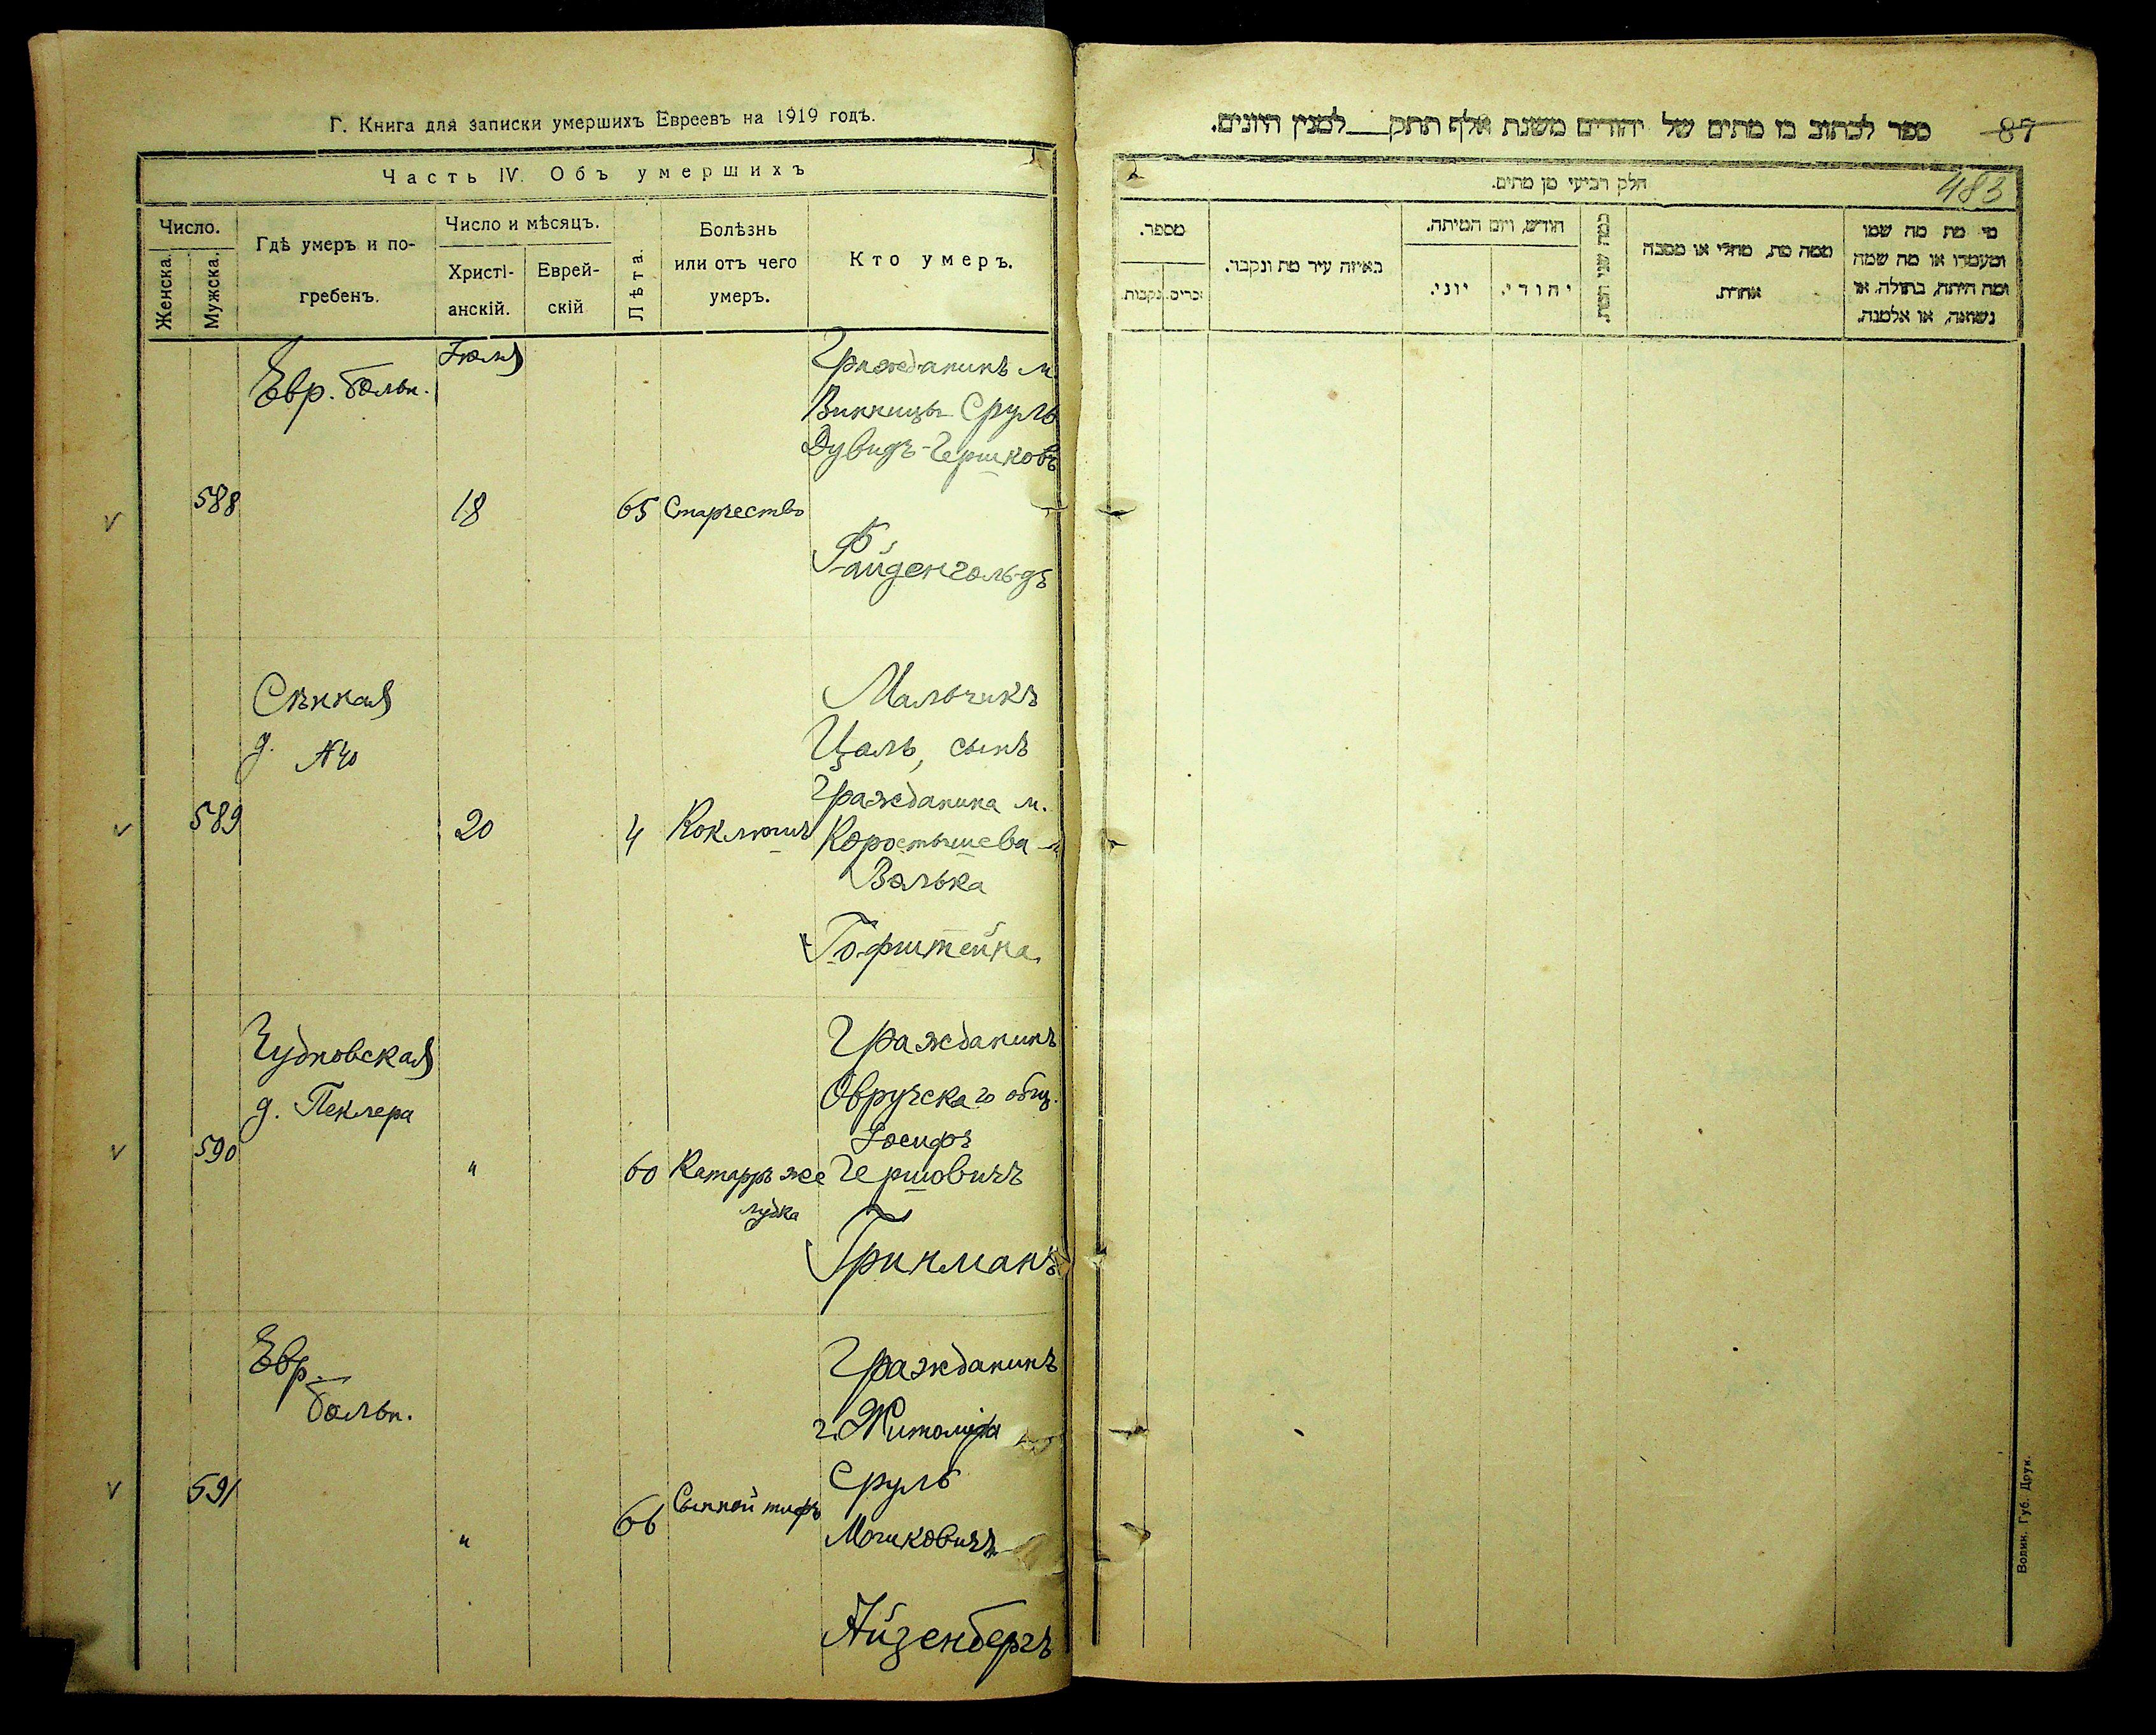 Г. Книга для записки умершихъ Евреевъ на 1919 годъ.
Часть IV. Объ умершихъ
Число.
Женска.
Мужска.
Гдѣ умеръ и по-
гребенъ.
Число и мѣсяцъ.
Христі-
анскій.
Еврей-
скій
Лѣта.
Болѣзнь
или отъ чего
умеръ.
Кто умеръ.
Іюля
Евр. больн.
588
18
65
Старчество
Гражданинъ м.
Винницы Сруль
Дувидъ-Гершковъ
Файденгольдъ
Сѣнная
д. №40
589
20
4
Коклюшъ
Мальчикъ
Цаль, сынъ
Гражданина м.
Коростышева
Волька
Гофштейна
Чудновская
д. Пеклера
590
"
60
Катарръ же
лудка
Гражданинъ
Овручскаго общ.
Іосифъ
Гершовичъ
Гринманъ
Евр.
больн.
591
"
66
Сыпной тифъ
Гражданинъ
г. Житоміра
Сруль
Мошковичъ
Айзенбергъ
87
ספר לכתוב בו מתים של יהודים משנת אלף תתק__למנין היונים.
483
חלק רביעי מן מתים.
מי מת מה שמו
ומעמדו או מה שמה
ומה היתה, בתולה, או
נשואה, או אלמנה.
ממה מת, מחלי או מסבה
אחרת.
כמה שני המת.
חודש, ויום המיתה.
יהודי.
יוני.
באיזה עיר מת ונקבר.
מספר.
זכרים.
נקבות.
Волин. Губ. Друк.